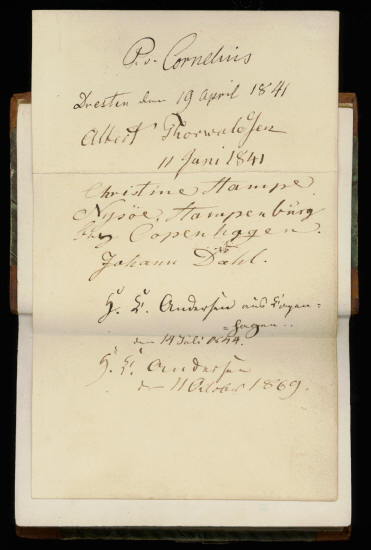 P. v. Cornelius
Dresden den 19 April 1841
Albert Thorwaldsen
11 Juni 1841
Christine Stampe
Nysöe, Stampenburg
Copenhagen.
Johann Dahl.
H. C. Andersen aus Copen-
=hagen..
den 14 Juli 1844.
H. C. Andersen
den 11 October 1869.